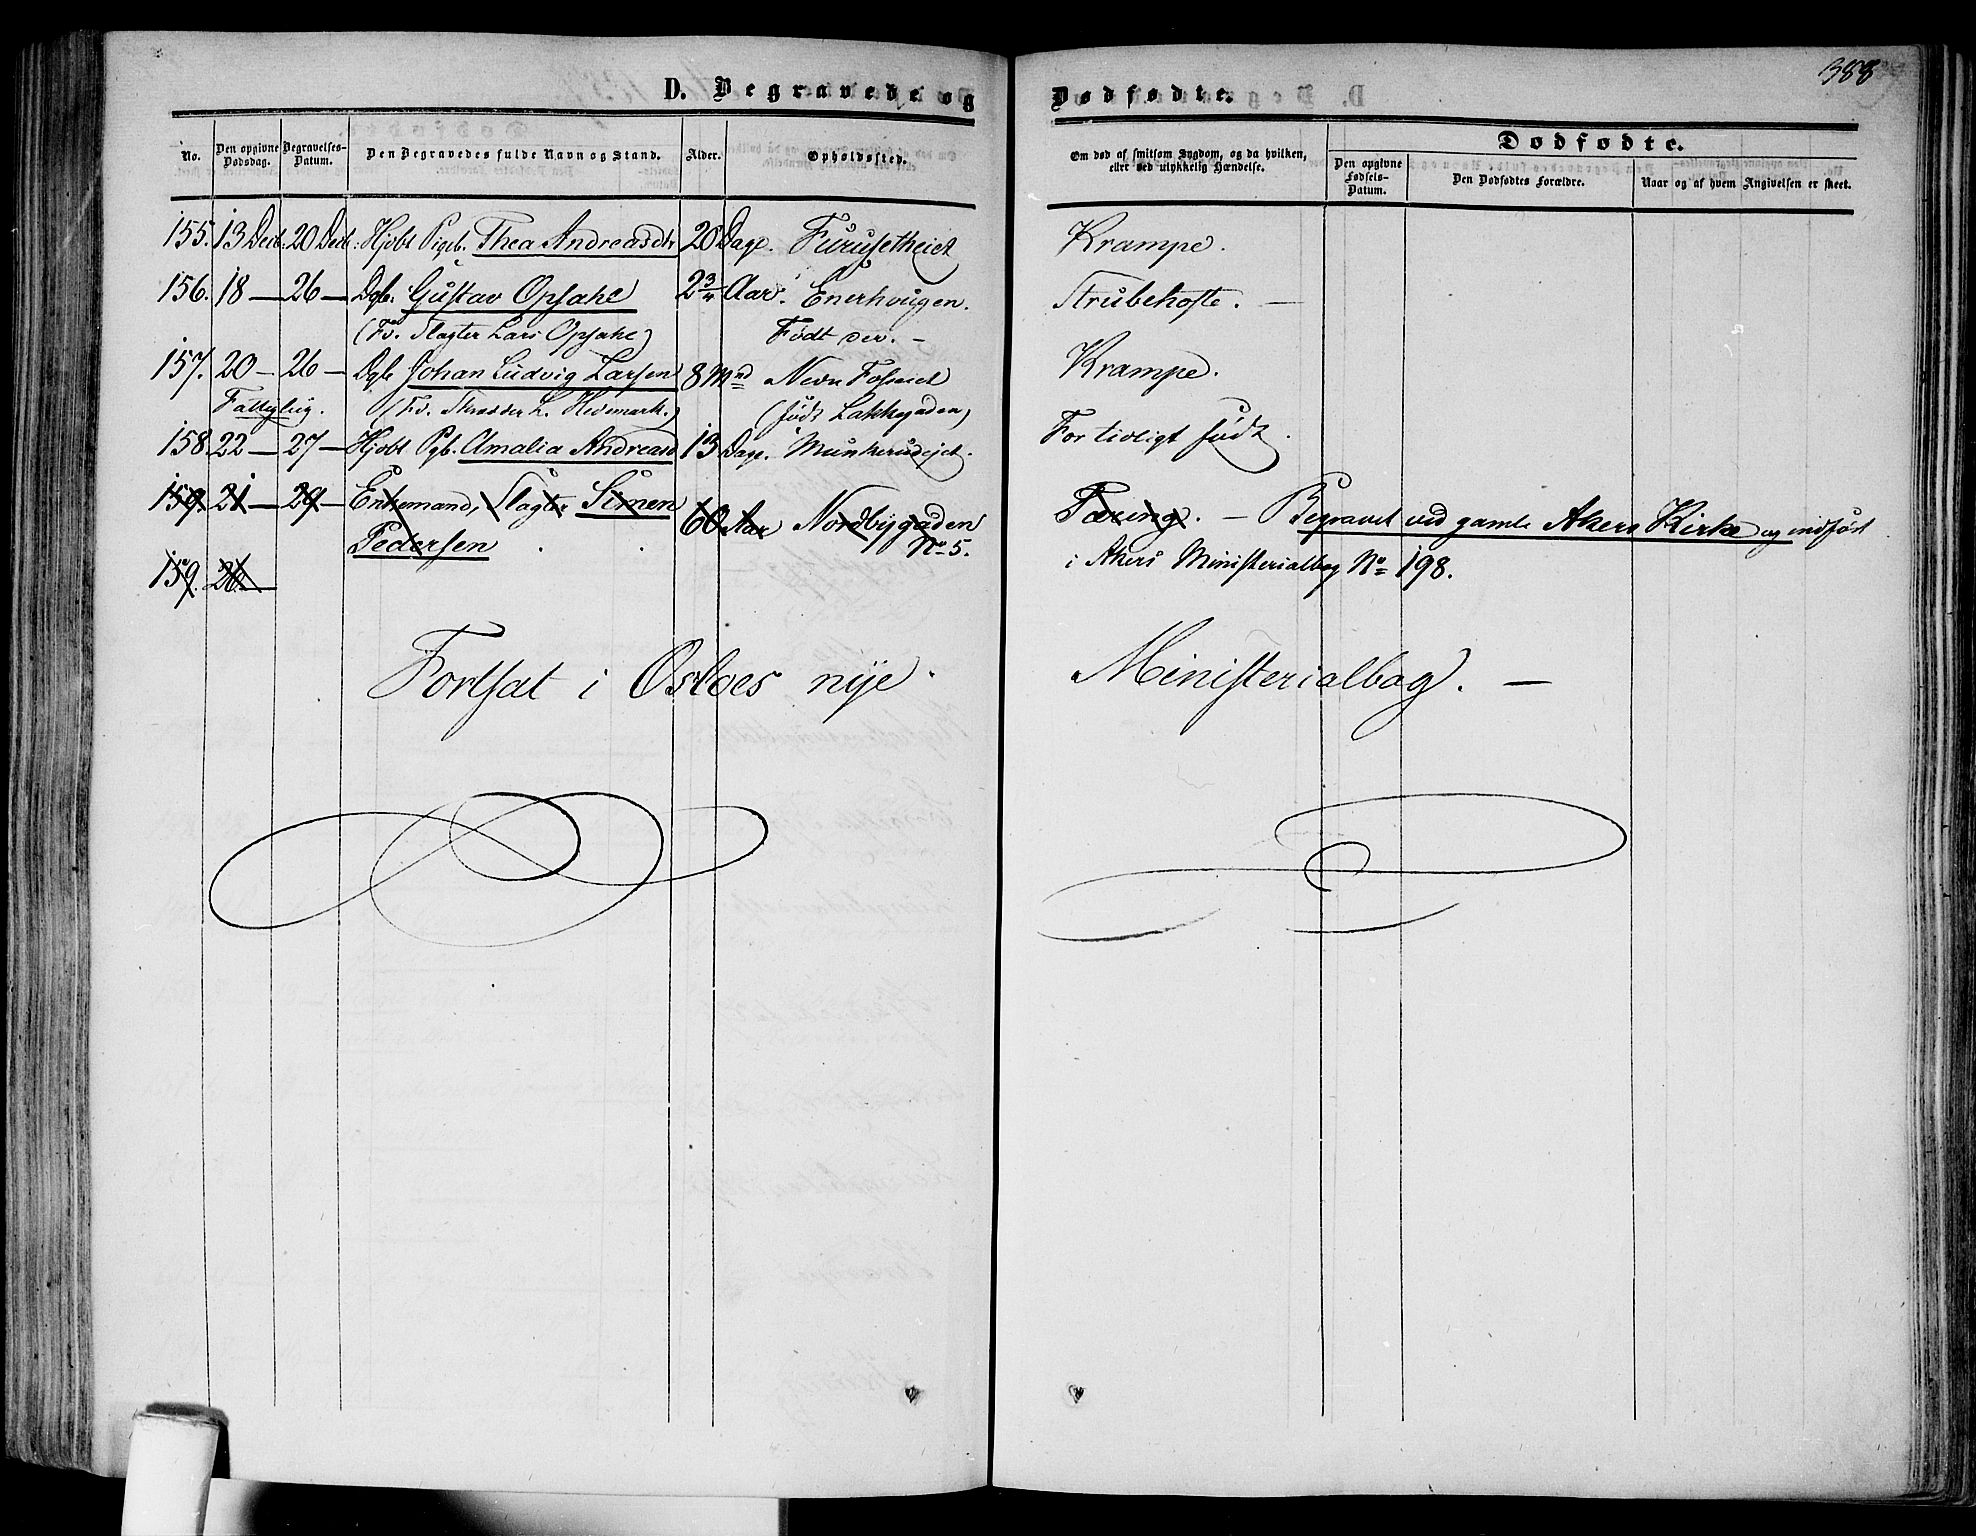 388
D. Begravede og Dødfødte.
Dødfødte.
No. Den opgivne Dødsdag. Begravelses-Datum. Den Begravedes fulde Navn og Stand. Alder. Opholdssted. Om død af smitsom Sygdom, og da hvilken, eller ved ulykkelig Hændelse. Den opgivne Fødsels-Datum. Den Dødfødtes Forældre. Naar og af hvem Angivelsen er skeet.
155. 13 Decb. 20 Decb. Hjobt Pigeb. Thea Andreasdtr 20 Dage. Furusetheiet Krampe.
156. 18 — 26 — Dgb. Gustav Opsahl 2 3/4 Aar. Enerhougen. Strubehoste. —
(Fv. Slagter Lars Opsahl) Født der. —
157. 20 — 26 — Dgb Johan Ludvig Larsen 8 Mnd Nedre Fosseiet Krampe.
Fattiglig. (Fv. Skrædder L. Hedemark.) (født Lakkegaden)
158. 22 — 27 — Hjobt Pgb. Amalia Andreasd 13 Dage. Munkerudejet. For tidligt født.
159. 21 — 29 — Enkemand, Slagter Simen 60 Aar Nordbygaden Tæring. — Begravet ved gamle Akers Kirke og indført
Pedersen No 5.
i Akers Ministerialbog No 198.
159. 26 —
Fortsat i Osloes nye Ministerialbog. —